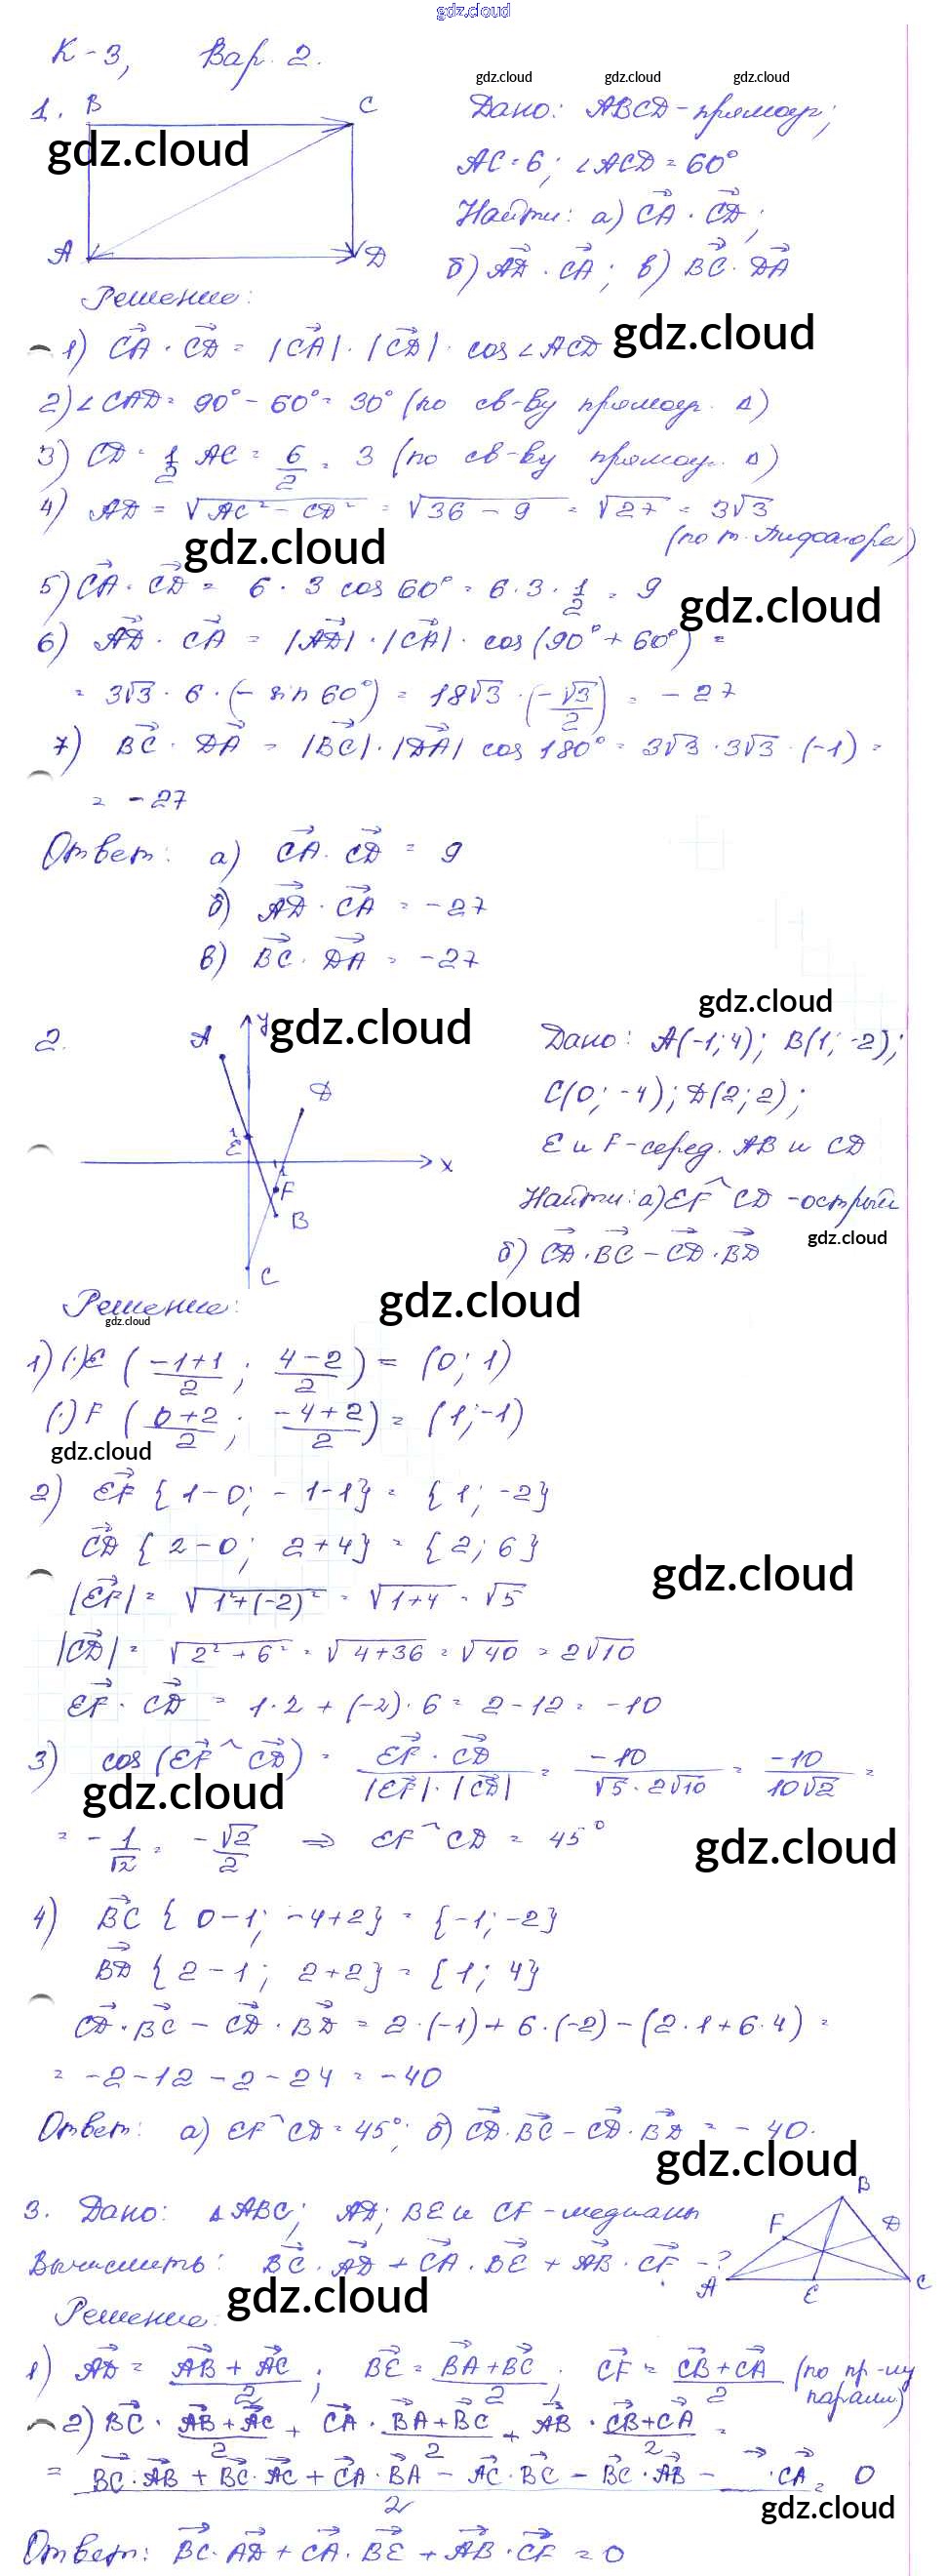 gdz.cloud
К-3, Вар. 2.
gdz.cloud gdz.cloud gdz.cloud
1. B C
Дано: ABCD-прямоуг;
gdz.cloud
AC=6; ∠ACD=60°
Найти: а) CA⃗ · CD⃗;
A D
б) AD⃗ · CA⃗; в) BC⃗ · DA⃗
Решение:
1) CA⃗ · CD⃗ = |CA⃗| · |CD⃗| · cos∠ACD gdz.cloud
2) ∠CAD = 90° - 60° = 30° (по св-ву прямоуг. Δ)
3) CD = 1/2 AC = 6/2 = 3 (по св-ву прямоуг. Δ)
4) AD = √(AC² - CD²) = √(36 - 9) = √27 = 3√3
(по т. Пифагора)
gdz.cloud
5) CA⃗ · CD⃗ = 6 · 3 cos 60° = 6 · 3 · 1/2 = 9
gdz.cloud
6) AD⃗ · CA⃗ = |AD⃗| · |CA⃗| · cos(90° + 60°) =
= 3√3 · 6 · (- sin 60°) = 18√3 · (-√3/2) = -27
7) BC⃗ · DA⃗ = |BC⃗| · |DA⃗| cos 180° = 3√3 · 3√3 · (-1) =
= -27
Ответ: а) CA⃗ · CD⃗ = 9
б) AD⃗ · CA⃗ = -27
в) BC⃗ · DA⃗ = -27
gdz.cloud
2. A y gdz.cloud
Дано: A(-1;4); B(1;-2);
D
C(0;-4); D(2;2);
1 E
E и F-серед. AB и CD
x 1
F
Найти: а) EF^CD -острый
B
gdz.cloud
б) CD⃗ · BC⃗ - CD⃗ · BD⃗
C
Решение:
gdz.cloud
gdz.cloud
1) (·)E ((-1+1)/2; (4-2)/2) = (0; 1)
(·)F ((0+2)/2; (-4+2)/2) = (1;-1)
gdz.cloud
2) EF⃗ {1-0; -1-1} = {1; -2}
CD⃗ {2-0; 2+4} = {2; 6}
gdz.cloud
|EF⃗| = √(1²+(-2)²) = √(1+4) = √5
|CD⃗| = √(2²+6²) = √(4+36) = √40 = 2√10
EF⃗ · CD⃗ = 1·2 + (-2)·6 = 2-12 = -10
3) cos(EF⃗^CD⃗) = (EF⃗ · CD⃗)/(|EF⃗| · |CD⃗|) = -10/(√5 · 2√10) = -10/(10√2) =
gdz.cloud
= -1/√2 = -√2/2 ⇒ EF^CD = 45°
gdz.cloud
4) BC⃗ {0-1; -4+2} = {-1; -2}
BD⃗ {2-1; 2+2} = {1; 4}
CD⃗ · BC⃗ - CD⃗ · BD⃗ = 2·(-1) + 6·(-2) - (2·1+6·4) =
= -2-12-2-24 = -40
Ответ: а) EF^CD = 45°; б) CD⃗ · BC⃗ - CD⃗ · BD⃗ = -40.
gdz.cloud
B
3. Дано: ΔABC; AD; BE и CF-медианы
F D
Вычислить: BC⃗ · AD⃗ + CA⃗ · BE⃗ + AB⃗ · CF⃗ -?
A E C
gdz.cloud
Решение:
1) AD⃗ = (AB⃗ + AC⃗)/2; BE⃗ = (BA⃗ + BC⃗)/2; CF⃗ = (CB⃗ + CA⃗)/2 (по пр-лу
парал.)
2) BC⃗ · (AB⃗ + AC⃗)/2 + CA⃗ · (BA⃗ + BC⃗)/2 + AB⃗ · (CB⃗ + CA⃗)/2 =
= (BC⃗ · AB⃗ + BC⃗ · AC⃗ + CA⃗ · BA⃗ - AC⃗ · BC⃗ - BC⃗ · AB⃗ - · CA⃗)/2 = 0
gdz.cloud
Ответ: BC⃗ · AD⃗ + CA⃗ · BE⃗ + AB⃗ · CF⃗ = 0